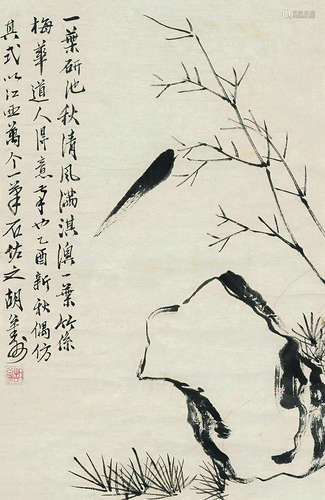 一葉研池秋清風滿淇澳一葉竹係
梅華道人得意筆也乙酉新秋偶仿
其式以江西萬个一筆石佐之胡公壽